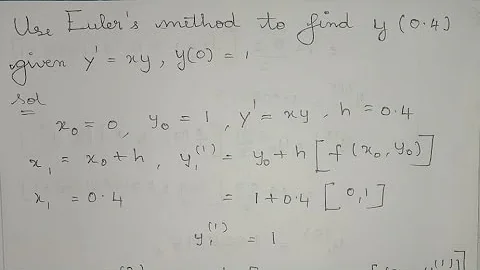 Use Euler's method to find y (0.4)
given y' = xy, y(0) = 1
sol
x₀ = 0, y₀ = 1, y' = xy, h = 0.4
x₁ = x₀ + h, y₁⁽¹⁾ = y₀ + h [f(x₀, y₀)]
x₁ = 0.4 = 1 + 0.4 [0,1]
y₁⁽¹⁾ = 1